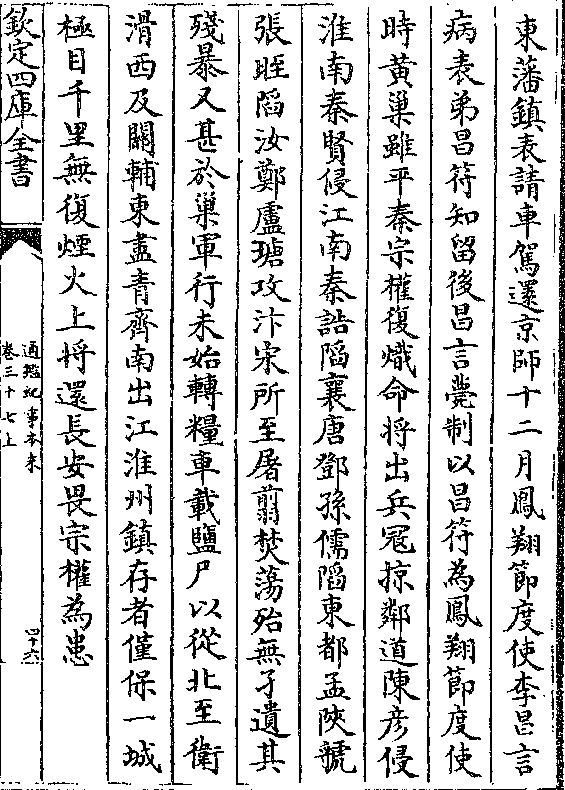 東藩鎮表請車駕還京師十二月鳳翔節度使李昌言
病表弟昌符知留後昌言薨制以昌符為鳳翔節度使
時黄巢雖平秦宗權復熾命将出兵冦掠鄰道陳彦侵
淮南秦賢侵江南秦誥䧟襄唐鄧孫儒䧟東都孟陜虢
張晊䧟汝鄭盧瑭攻汴宋所至屠翦焚蕩殆無孑遺其
殘暴又甚於巢軍行未始轉糧車載鹽尸以從北至衛
滑西及關輔東盡青齊南出江淮州鎮存者僅保一城
極目千里無復煙火上将還長安畏宗權為患
欽定四庫全書
通鑑紀事本末
卷三十七上
四十六